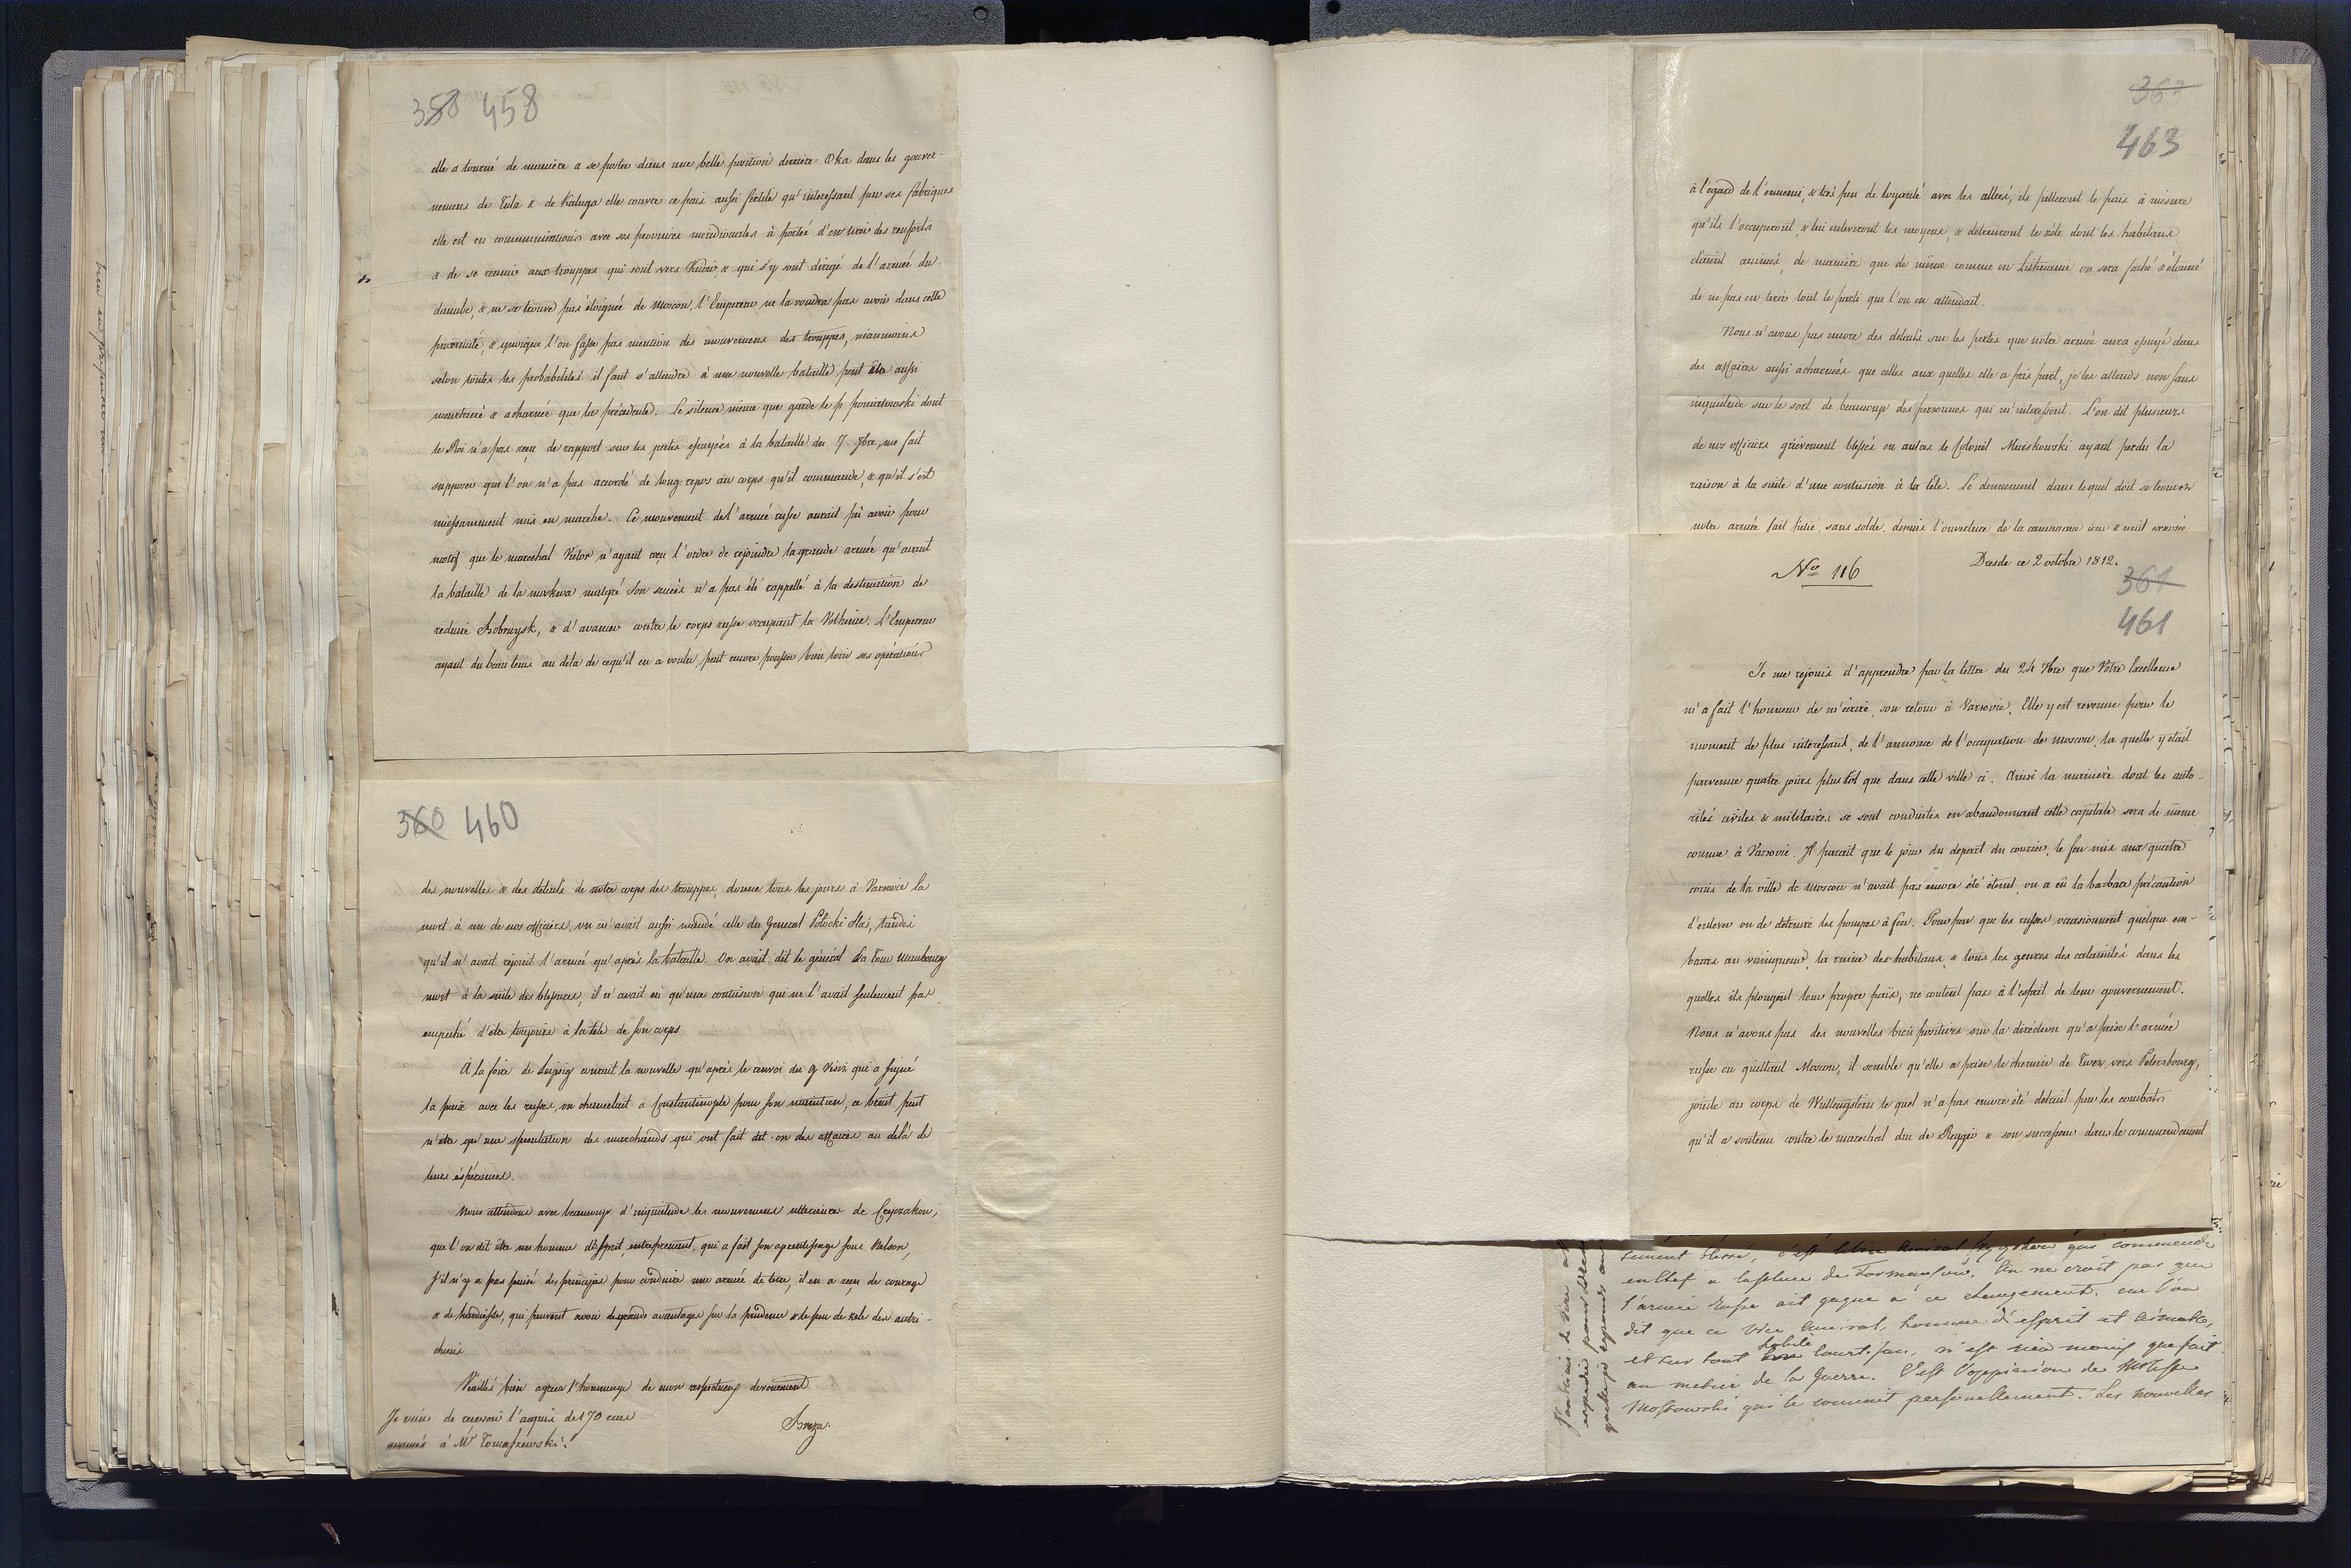 358 458
elle a tourné de maniere a se porter dans une belle position derriere Oka dans les gouver-
nemens de Tula & de Kaluga elle couvre ce pais aussi fertile qu'interessant par ses fabriques
elle est en communications avec ses provinces meridionales à portée d'en tirer des renforts
& de se reunir aux trouppes qui sont vers & qui s'y sont dirigé de l'armée du
danube, & ne se trouve pas éloignée de Moscou, l'Empereur ne la voudra pas avoir dans cette
proximité, & quoique l'on fasse pas mention des mouvemens des trouppes, néanmoins
selon toutes les probabilités il faut s'attendre à une nouvelle bataille peut être aussi
meurtriere & acharnée que la précédente. Le silence même que garde le p. poniatowski dont
le Roi n'a pas reçu de rapport sur les pertes essuyées à la bataille du 7. 7bre, me fait
supposer que l'on n'a pas accordé de long repos au corps qu'il commande, & qu'il s'est
incessamment mis en marche. Ce mouvement de l'armée russe aurait pû avoir pour
motif que le marechal Victor n'ayant reçu l'ordre de rejoindre la grande armée qu'avant
la bataille de la moskwa malgré son succès n'a pas été rappellé à la destination de
reduire Bobruysk, & d'avancer contre le corps russe occupant la Volhinie. L'Empereur
ayant du beau tems au dela de ce qu'il en a voulu, peut encore pousser bien loin ses opérations
360 460
des nouvelles & des détails de notre corps des trouppes, donne tous les jours à Varsovie la
mort à un de nos officiers, on m'avait aussi mandé celle du General Potocki Stas, tandis
qu'il n'avait rejoint l'armée qu'après la bataille. On avait dit le général La Tour Maubourg
mort à la suite des blessures, il n'avait eû qu'une contusion qui ne l'avait seulement pas
empeché d'être toujours à la tête de son corps.
A la foire de Leipsig courait la nouvelle qu'après le renvoi du g Visir qui a signé
la paix avec les russes, on chancelait à Constantinople pour son maintien, ce bruit peut
n'être qu'une speculation des marchands qui ont fait dit-on des affaires au delà de
leurs espérances.
Nous attendons avec beaucoup d'inquietude les mouvemens ulterieures de Czyczakow,
que l'on dit être un homme d'esprit, entreprenant, qui a fait son aprentissage sous Nelson,
s'il n'y a pas puisé des principes pour conduire une armée de terre, il en a reçu de courage
& de hardiesse, qui peuvent avoir de grands avantages sur la prudence & le peu de zele des autri-
chiens.
Veuillés bien agréer l'hommage de mon respectueux devouement
Je viens de recevoir l'acquis de 170 ecus
à Mr Tomaszewski.
Breza.
463
à l'egard de l'ennemi, & très peu de loyauté avec les alliées, ils pilleront le pais à mesure
qu'ils l'occuperont, & lui enleveront les moyens, & détruiront le zèle dont les habitans
étaient animés, de maniere que de même comme en Lithuanie on sera faché & étonné
de ne pas en tirer tout le parti que l'on en attendait.
Nous n'avons pas encore des details sur les pertes que notre armée aura essuyé dans
des affaires aussi acharnées que celles aux quelles elle a pris part, je les attends non sans
inquiétude sur le sort de beaucoup des personnes qui m'interessent. L'on dit plusieurs
de nos officiers griévement blessés en autres le Colonel Miaskowski ayant perdu la
raison à la suite d'une contusion à la tête. Le denuement dans lequel doit se trouver
notre armée fait pitié, sans solde, depuis l'ouverture de la campagne jour & nuit exposée
No 116
Dresde ce 2 octobre 1812.
361
461
Je me rejouis d'apprendre par la lettre du 24 7bre que Votre Excellence
m'a fait l'honneur de m'écrire, son retour à Varsovie. Elle y est revenue pour le
moment de plus interessant, de l'annonce de l'occupation de Moscou, la quelle y était
parvenue quatre jours plus tôt que dans cette ville ci. Ainsi la maniere dont les auto-
rités civiles & militaires se sont conduites en abandonnant cette capitale sera de même
connue à Varsovie. Il parait que le jour du depart du courier, le feu mis aux quatre
coins de la ville de Moscou n'avait pas encore été éteint, on a eû la barbare précaution
d'enlever ou de detruire les pompes à feu. Pour peu que les russes occasionnent quelque em-
barras au vainqueur, la ruine des habitans, & tous les genres des calamités dans les
quelles ils plongent leur propre pais, ne coutent pas à l'esprit de leur gouvernement.
Nous n'avons pas des nouvelles bien positives sur la direction qu'a prise l'armée
russe en quittant Moscou, il semble qu'elle a prise le chemin de Twer vers Petersbourg,
jointe au corps de Wittengstein le quel n'a pas encore été detruit par les combats
qu'il a soutenu contre le marechal duc de Reggio & son successeur dans le commandement
en Chef a la place de Tormansow. On ne croit pas que
l'armée Russe ait gagné a ce changement, car l'on
dit que ce Vice Amiral, homme d'esprit et aimable,
et sur tout habile Courtisan, n'est rien moins que fait
au metier de la Guerre. C'est l'oppinion de
Mostowski qui le connait personellement. Les nouvelles